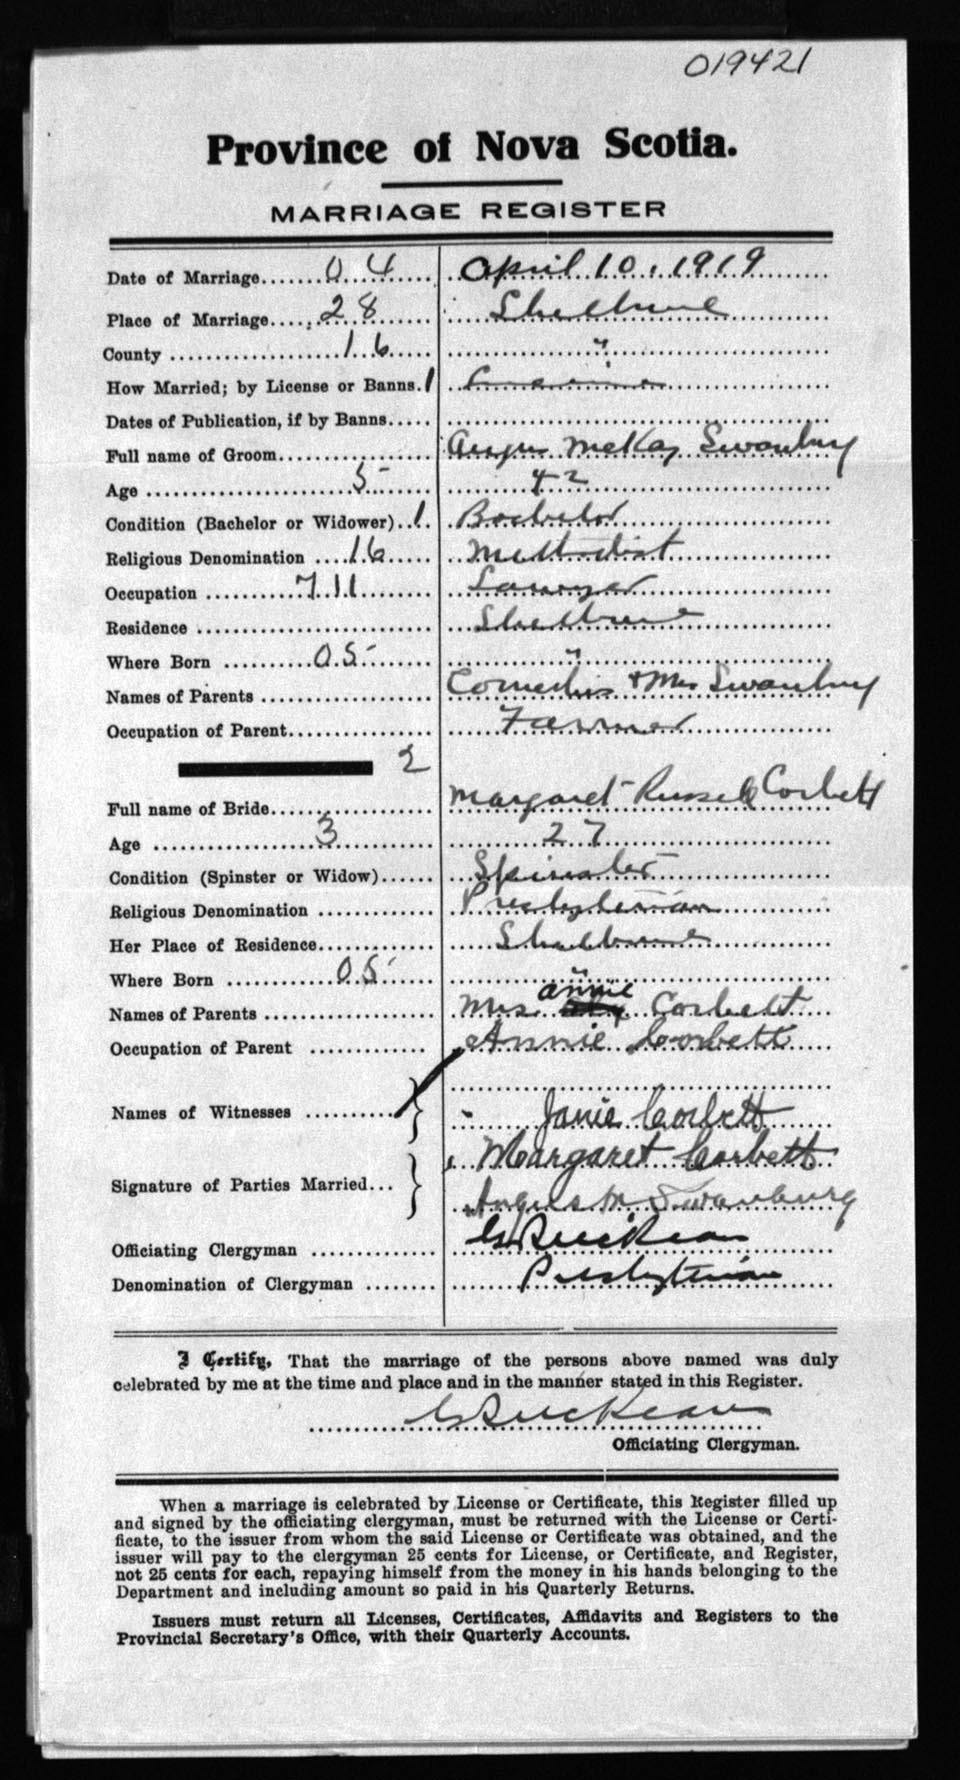 019421
Province of Nova Scotia.
MARRIAGE REGISTER
Date of Marriage.......0 4..... April 10, 1919
Place of Marriage....28...... Shelburne
County ...................16..... "
How Married; by License or Banns. 1 License
Dates of Publication, if by Banns.....
Full name of Groom............... Angus McKay Swanburg
Age .....................5....... 42
Condition (Bachelor or Widower)..1. Bachelor
Religious Denomination ....16..... Methodist
Occupation ..........711........ Lawyer
Residence .......................... Shelburne
Where Born .........05....... "
Names of Parents ................... Cornelius & Mrs Swanburg
Occupation of Parent................ Farmer
2
Full name of Bride.................. Margaret Russell Corbett
Age ................3............ 27
Condition (Spinster or Widow)...... Spinster
Religious Denomination ............. Presbyterian
Her Place of Residence............. Shelburne
Where Born ............05...... "
Names of Parents ................... Mrs. Annie Corbett
Occupation of Parent .............
Annie Corbett
Names of Witnesses .......... Janie Corbett
Margaret Corbett
Signature of Parties Married... Angus M Swanburg
Officiating Clergyman ..............
Denomination of Clergyman ........ Presbyterian
I Certify, That the marriage of the persons above named was duly
celebrated by me at the time and place and in the manner stated in this Register.
Officiating Clergyman.
When a marriage is celebrated by License or Certificate, this Register filled up
and signed by the officiating clergyman, must be returned with the License or Certi-
ficate, to the issuer from whom the said License or Certificate was obtained, and the
issuer will pay to the clergyman 25 cents for License, or Certificate, and Register,
not 25 cents for each, repaying himself from the money in his hands belonging to the
Department and including amount so paid in his Quarterly Returns.
Issuers must return all Licenses, Certificates, Affidavits and Registers to the
Provincial Secretary's Office, with their Quarterly Accounts.